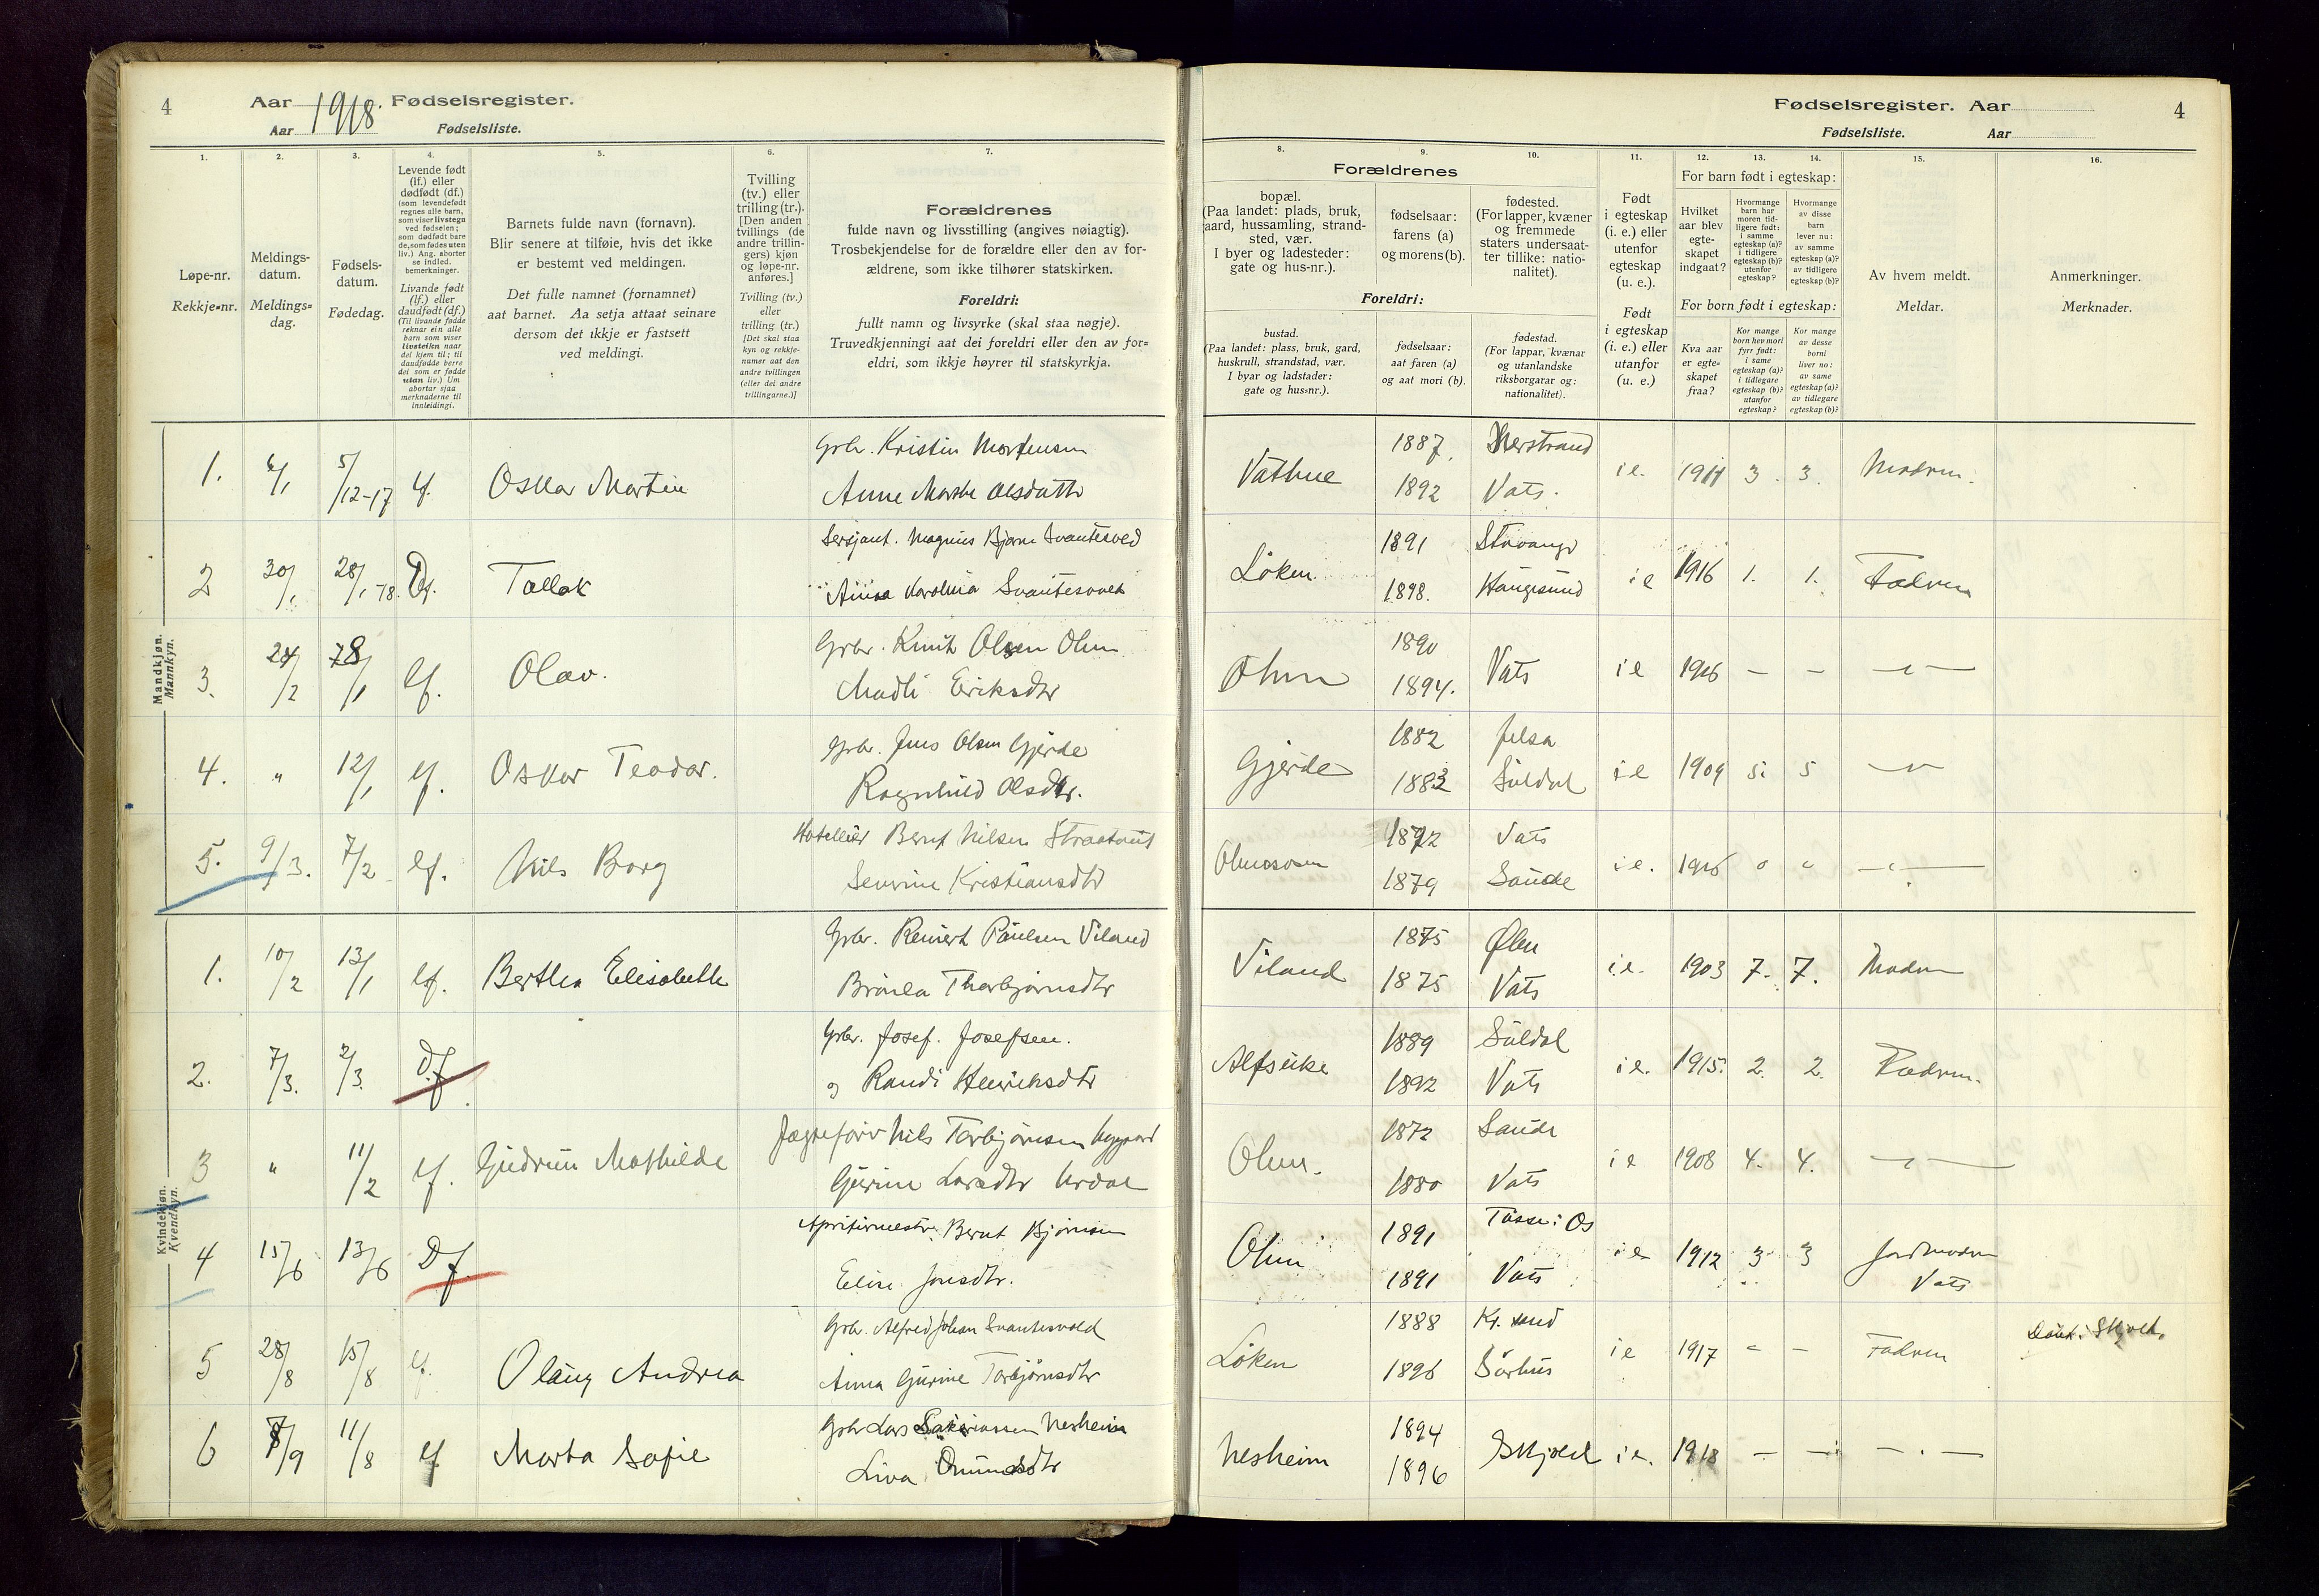 4 Aar 1918. Fødselsregister.
Aar Fødselsliste.
Fødselsregister. Aar 4
Fødselsliste. Aar
1. 2. 3. 4. 5. 6. 7.
Løpe-nr.
Rekkje=nr.
Meldings-
datum.
Meldings=
dag.
Fødsels-
datum.
Fødedag.
Levende født
(lf.) eller
dødfødt (df.)
(som levendefødt
regnes alle barn,
som viser livstegn
ved fødselen;
som dødfødt bare
de, som fødes uten
liv.) Ang. aborter
se indled.
bemerkninger.
Livande født
(lf.) eller
daudfødt (df.)
(Til livande fødde
reknar ein alle
barn som viser
livsteikn naar
dei kjem til; til
daudfødde berre
dei som er fødde
utan liv.) Um
abortar sjaa
merknaderne til
innleidingi.
Barnets fulde navn (fornavn).
Blir senere at tilføie, hvis det ikke
er bestemt ved meldingen.
Det fulle namnet (fornamnet)
aat barnet. Aa setja attaat seinare
dersom det ikkje er fastsett
ved meldingi.
Tvilling
(tv.) eller
trilling (tr.).
[Den anden
tvillings (de
andre trillin-
gers) kjøn
og løpe-nr.
anføres.]
Tvilling (tv.)
eller
trilling (tr.)
[Det skal staa
kyn og rekkje-
numer aat den
andre tvillingen
(eller dei andre
trillingarne.)]
Forældrenes
fulde navn og livsstilling (angives nøiagtig).
Trosbekjendelse for de forældre eller den av for-
ældrene, som ikke tilhører statskirken.
Foreldri:
fullt namn og livsyrke (skal staa nøgje).
Truvedkjenningi aat dei foreldri eller den av for=
eldri, som ikkje høyrer til statskyrkja.
8. 9. 10. 11. 12. 13. 14. 15. 16.
Forældrenes
bopæl.
(Paa landet: plads, bruk,
gaard, hussamling, strand-
sted, vær.
I byer og ladesteder:
gate og hus-nr.).
fødselsaar:
farens (a)
og morens (b).
fødested.
(For lapper, kvæner
og fremmede
staters undersaat-
ter tillike: natio-
nalitet).
Foreldri:
bustad.
(Paa landet: plass, bruk, gard,
huskrull, strandstad, vær.
I byar og ladstader:
gate og hus=nr.).
fødselsaar:
aat faren (a)
og aat mori (b).
fødestad.
(For lappar, kvænar
og utanlandske
riksborgarar og:
nationalitet).
Født
i egteskap
(i. e.) eller
utenfor
egteskap
(u. e.).
Født
i egteskap
(i. e.) eller
utanfor
(u. e.)
For barn født i egteskap:
Hvilket
aar blev
egte-
skapet
indgaat?
Hvormange
barn har
moren tid-
ligere født:
i samme
egteskap (a)?
i tidligere
egteskap (b)?
utenfor
egteskap?
Hvormange
av disse
barn
lever nu:
av samme
egteskap (a)?
av tidligere
egteskap (b)?
For born født i egteskap:
Kva aar
er egte-
skapet
fraa?
Kor mange
born hev mori
fyrr født:
i same
egteskap (a)?
i tidlegare
egteskap (b)?
utanfor
egteskap?
Kor mange
av desse
borni
liver no:
av same
egteskap (a)?
av tidlegare
egteskap (b)?
Av hvem meldt.
Meldar.
Anmerkninger.
Merknader.
Mandkjøn.
Mannkyn.
1. 6/1 5/12-17 lf. Oskar Martin Grbr. Kristin Mortensen
Anne Marthe Olsdatter
Vathne 1887 Nerstrand i e. 1911 3. 3. Modren.
1892 Vats.
2 30/1 28/1-18. Df. Tallak Sersjant. Magnus Bjarne Svantesvold
Anna Karolina Svantesvold
Löken 1891 Stavanger i e 1916 1. 1. Fadren
1898. Haugesund
3. 24/2 28/1 lf. Olav. Grbr. Knut Olsen Ohm
Madli Eriksdtr
Ohm 1890 Vats i e 1916 — — —"—
1894.
4. " 12/1 lf. Oskar Teodor. Grbr. Jens Olsen Gjerde
Ragnhild Olsdtr.
Gjerde 1882 Jelsa i e 1909 5 5 —"—
1883 Suldal
5. 9/3. 7/2 lf. Nils Borg Hotelleier Bernt Nilsen
Severine Kristiansdtr
1872 Vats i e. 1916 0 " —"—
1879 Saude
Kvindekjøn.
Kvendkyn.
1. 10/2 13/1 lf. Berthe Elisabeth Grbr. Reinert Paulsen Viland
Thorbjørnsdtr
Viland 1875 Ølen i e. 1903 7. 7. Modren
1875 Vats
2. 7/3. 2/3. D.f Grbr. Josef. Josefsen.
og Randi Henriksdtr
Alfseike 1889 Suldal i e. 1915. 2. 2. Fadren.
1892 Vats
3 " 11/2 lf. Gudrun Mathilde Nils Torbjørnsen
Gurine Larsdtr
Ohm. 1872 Saude i e 1908 4. 4. —"—
1880 Vats
4 15/6 13/6 Df. Bernt Bjørnsen
Elise Jonsdtr.
Ohm 1891 Os i e 1912 3 3 Jordmoren
1891 Vats Vats
5 28/8 15/8 lf. Olaug Andrea Grbr. Alfred Johan Svantesvold
Anna Gurine Torbjørnsdtr
Löken 1888 Kr. sund i e 1917 " — Fadren Døbt i Skjold.
1896
6 7/9 11/8 lf Marta Sofie Grbr Lars Sakariassen Nesheim
Liva Omundsdtr
Nesheim 1894 Skjold i e. 1918 — — —"—
1896